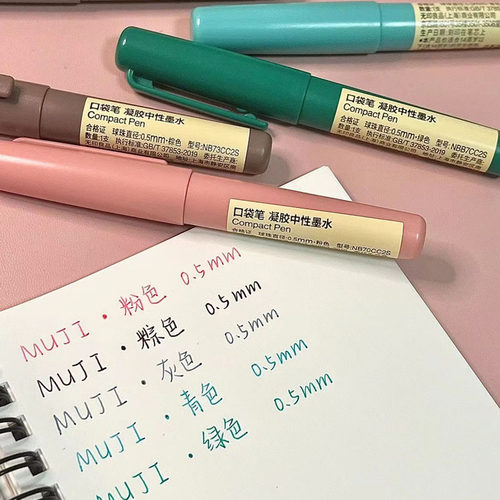 数量:1支 执行标准:GB/T 37853
无印良品(上海)商业有限公司
生产日期:印在笔芯上
口袋笔 凝胶中性墨水
Compact Pen
合格证 球珠直径:0.5mm·绿色 型号:NBB7CC2S
数量:1支 执行标准:GB/T 37853-2019 委托生产商:
口袋笔 凝胶中性墨水
Compact Pen
合格证 球珠直径:0.5mm·棕色 型号:NB73CC2S
数量:1支 执行标准:GB/T 37853-2019 委托生产商:
口袋笔 凝胶中性墨水
Compact Pen
合格证 球珠直径:0.5mm·粉色 型号:NB70CC2S
MUJI · 粉色 0.5mm
MUJI · 粽色 0.5mm
MUJI · 灰色 0.5mm
MUJI · 青色 0.5mm
MUJI · 绿色 0.5mm